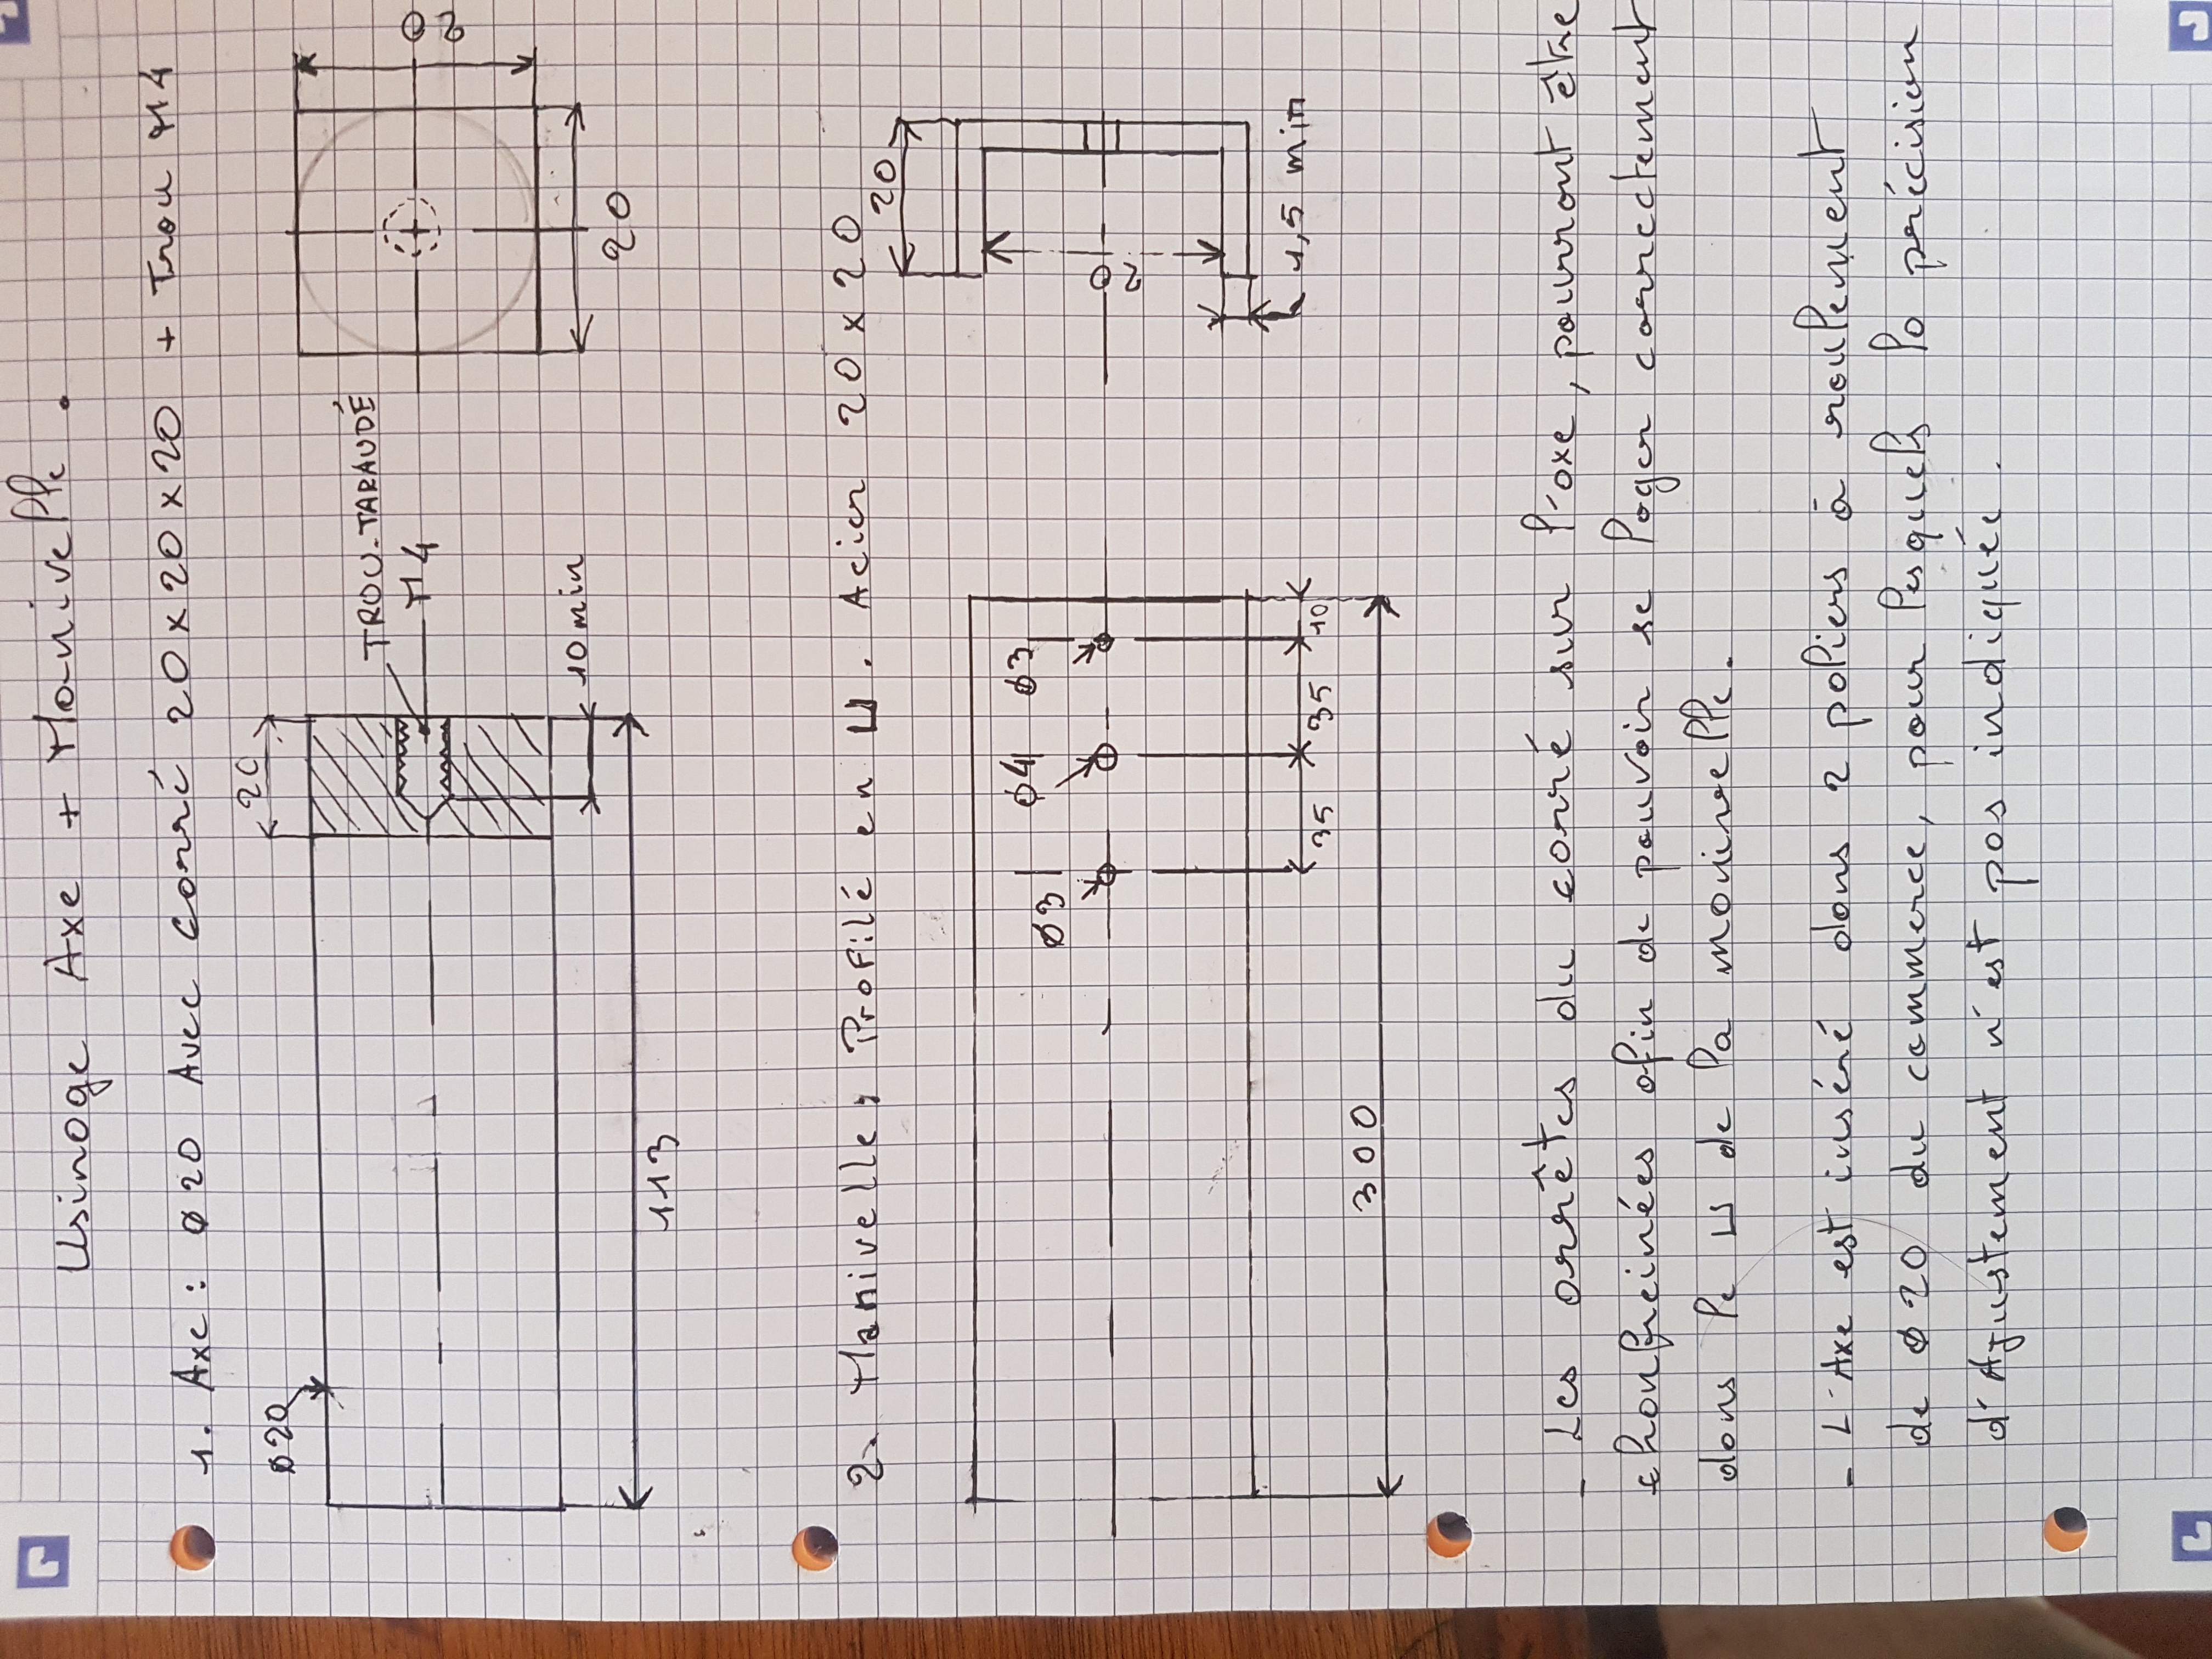 Usinage Axe + Manivelle.
1. Axe : ø20 Avec carré 20x20x20 + Trou M4
ø20
20
TROU-TARAUDÉ
M4
10 min
113
20
20
2. Manivelle, Profilé en U. Acier 20x20
ø3
ø4
ø3
35
35
10
300
20
20
1,5 min
- Les arrêtes du carré sur l'axe, pourront être
chanfreinées afin de pouvoir se loger correctement
dans le U de la manivelle.
- L'Axe est inséré dans 2 paliers à roulement
de ø20 du commerce, pour lesquels la précision
d'Ajustement n'est pas indiquée.